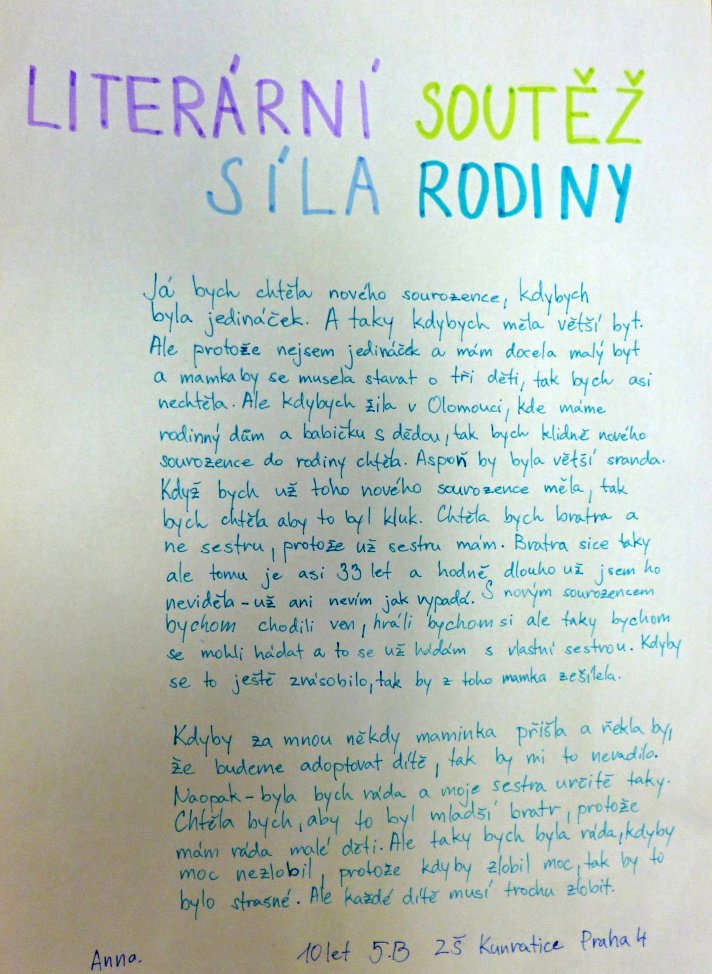 LITERÁRNÍ SOUTĚŽ
SÍLA RODINY
Já bych chtěla nového sourozence, kdybych
byla jedináček. A taky kdybych měla větší byt.
Ale protože nejsem jedináček a mám docela malý byt
a mamka by se musela stavat o tři děti, tak bych asi
nechtěla. Ale kdybych žila v Olomouci, kde máme
rodinný dům a babičku s dědou, tak bych klidně nového
sourozence do rodiny chtěla. Aspoň by byla větší sranda.
Když bych už toho nového sourozence měla, tak
bych chtěla aby to byl kluk. Chtěla bych bratra a
ne sestru, protože už sestru mám. Bratra sice taky
ale tomu je asi 33 let a hodně dlouho už jsem ho
neviděla - už ani nevím jak vypadá. S novým sourozencem
bychom chodili ven, hráli bychom si ale taky bychom
se mohli hádat a to se už hádám s vlastní sestrou. Kdyby
se to ještě znásobilo, tak by z toho mamka zešílela.
Kdyby za mnou někdy maminka přišla a řekla by,
že budeme adoptovat dítě, tak by mi to nevadilo.
Naopak - byla bych ráda a moje sestra určitě taky.
Chtěla bych, aby to byl mladší bratr, protože
mám ráda malé děti. Ale taky bych byla ráda, kdyby
moc nezlobil, protože kdyby zlobil moc, tak by to
bylo strasné. Ale každé dítě musí trochu zlobit.
Anna. 10 let 5.B ZŠ Kunratice Praha 4